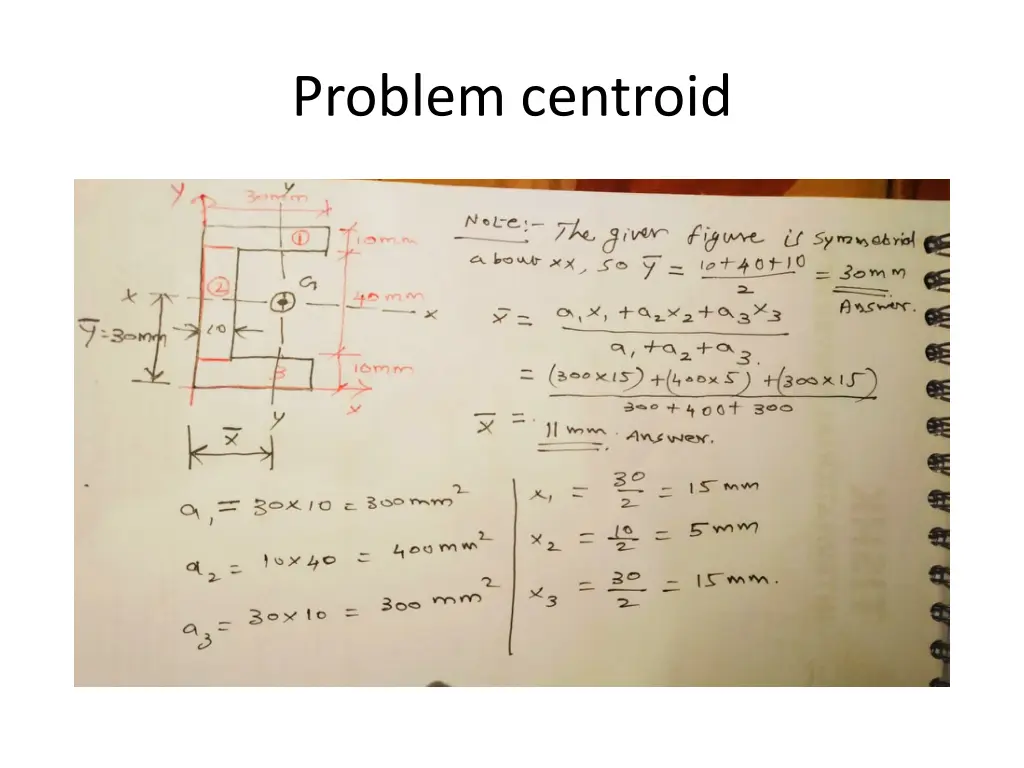 Problem centroid
Y
30mm
Y
①
10mm
②
G
X
40mm
X
ȳ=30mm
10
3
10mm
X
Y
x̄
Note:- The given figure is symmetrical
about xx, so ȳ = (10+40+10)/2 = 30mm
Answer.
x̄ = (a₁x₁ + a₂x₂ + a₃x₃)/(a₁ + a₂ + a₃.)
= ((300×15) + (400×5) + (300×15))/(300 + 400 + 300)
x̄ = 11 mm. Answer.
a₁ = 30×10 = 300mm²
a₂ = 10×40 = 400mm²
a₃ = 30×10 = 300 mm²
x₁ = 30/2 = 15 mm
x₂ = 10/2 = 5 mm
x₃ = 30/2 = 15 mm.